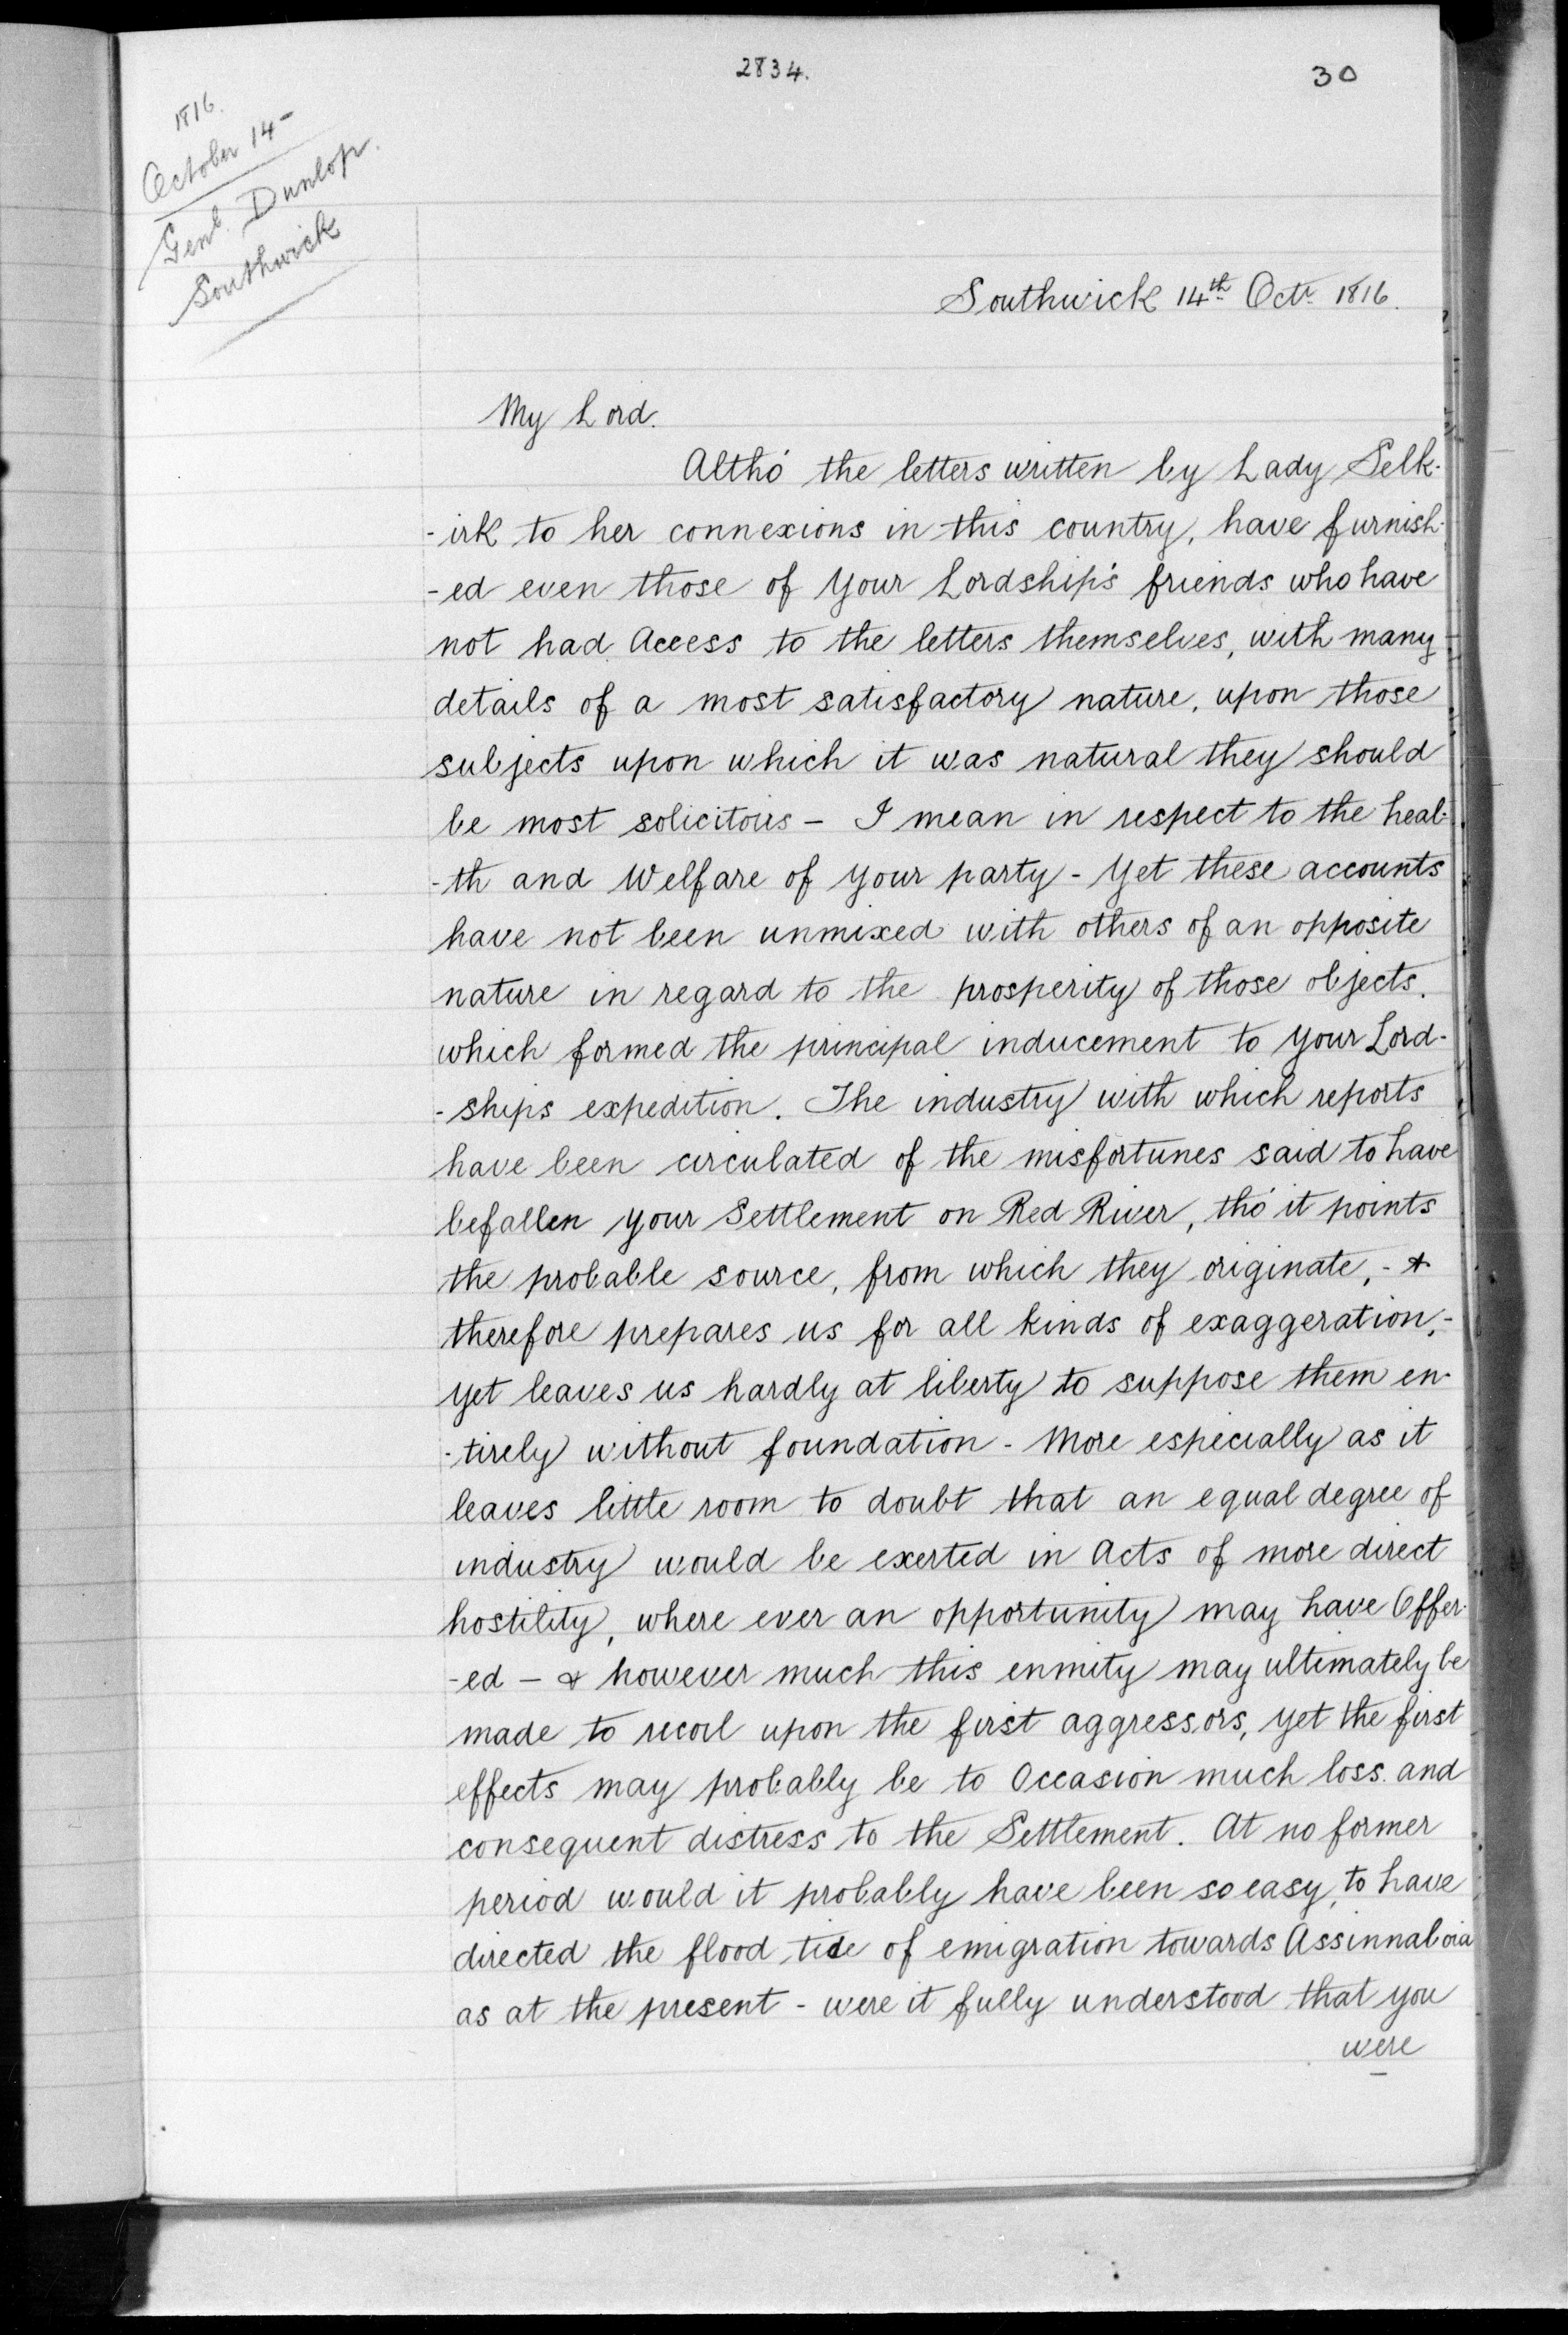 2834.
30
1816.
October 14-
Genl. Dunlop.
Southwick
Southwick 14th Octr 1816.
My Lord.
Altho' the letters written by Lady Selk-
-irk to her connexions in this country, have furnish-
-ed even those of Your Lordship's friends who have
not had Access to the letters themselves, with many
details of a most satisfactory nature, upon those
subjects upon which it was natural they should
be most solicitous - I mean in respect to the heal-
-th and Welfare of your party - Yet these accounts
have not been unmixed with others of an opposite
nature in regard to the prosperity of those objects.
which formed the principal inducement to your Lord-
-ships expedition. The industry with which reports
have been circulated of the misfortunes said to have
befallen your Settlement on Red River, tho' it points
the probable source, from which they originate, - &
therefore prepares us for all kinds of exaggeration, -
yet leaves us hardly at liberty to suppose them en-
-tirely without foundation - More especially as it
leaves little room to doubt that an equal degree of
industry would be exerted in Acts of more direct
hostility, where ever an opportunity may have Offer-
-ed - & however much this enmity may ultimately be
made to recoil upon the first aggressors, yet the first
effects may probably be to Occasion much loss. and
consequent distress to the Settlement. At no former
period would it probably have been so easy, to have
directed the flood tide of emigration towards Assinnaboia
as at the present - were it fully understood that you
were